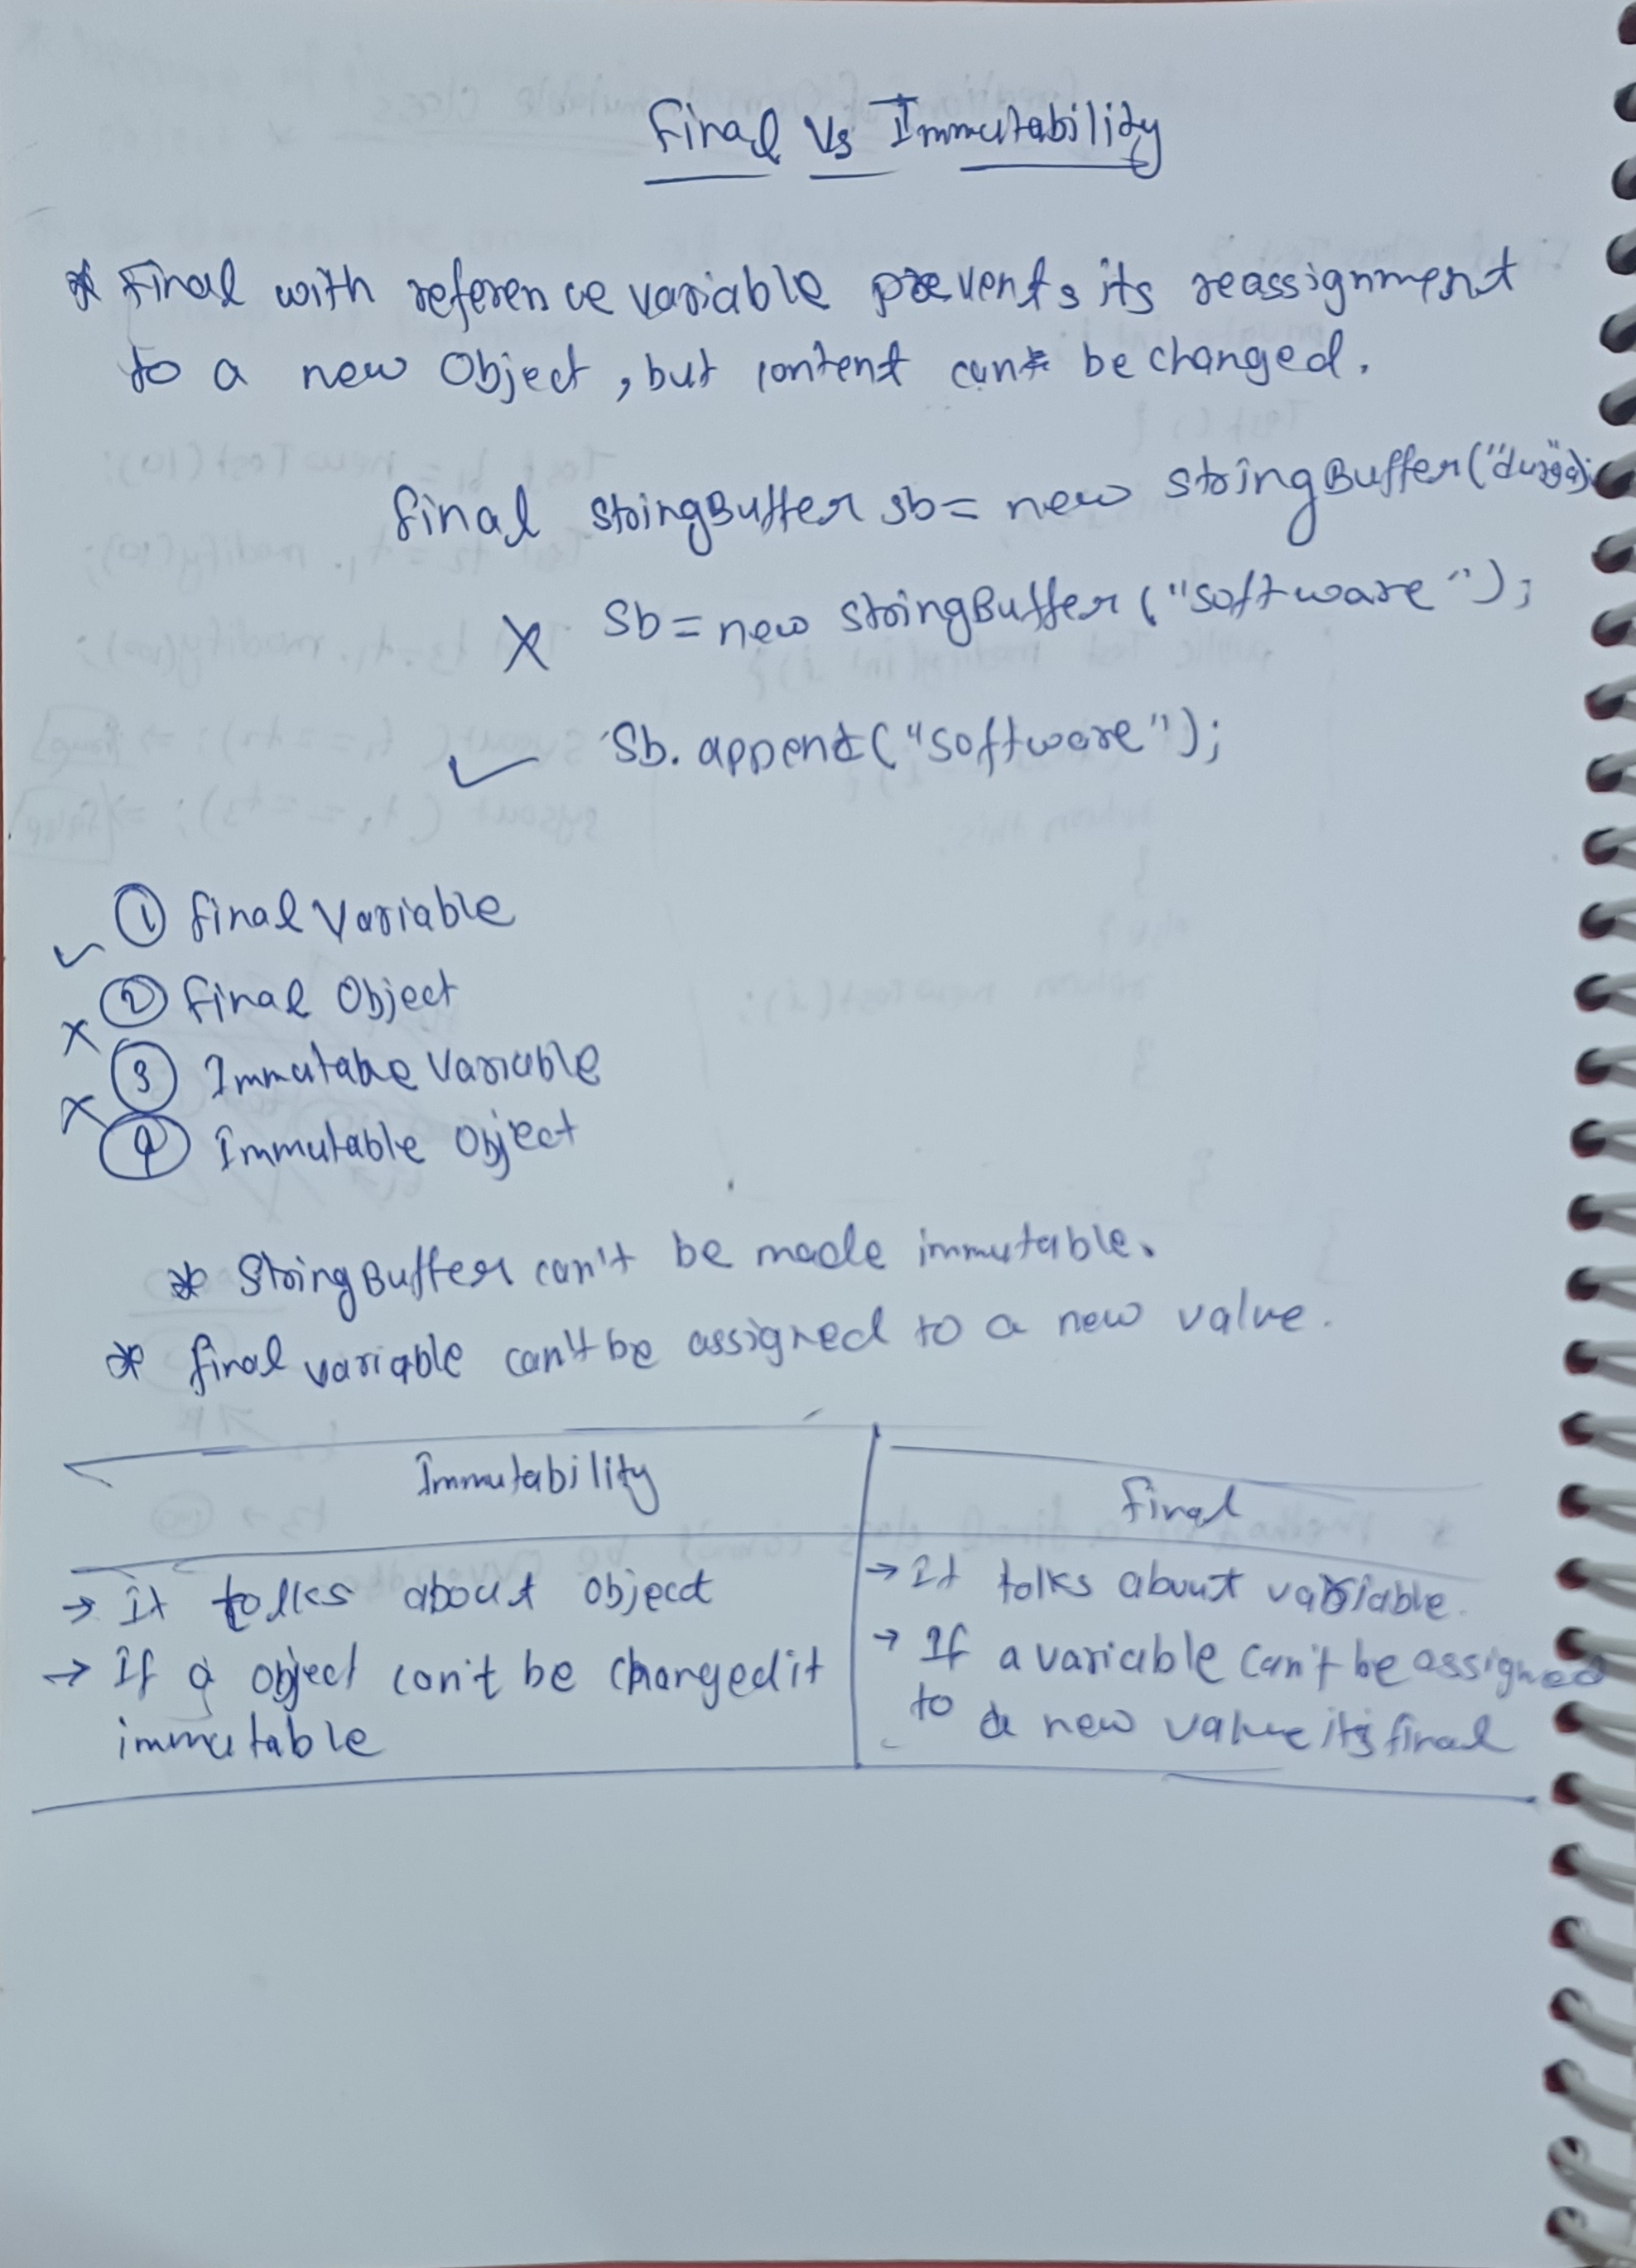 Final Vs Immutability
* Final with reference variable prevents its reassignment
to a new Object, but content can be changed.
final StringBuffer sb= new StringBuffer("durga");
X Sb=new StringBuffer("software");
✓ Sb.append("software");
✓ ① final Variable
X ② final Object
X ③ Immutabe Variable
④ Immutable Object
* StringBuffer can't be made immutable.
* final variable can't be assigned to a new value.
Immutability final
→ It talks about object → It talks about variable.
→ If a object can't be changed it → If a variable can't be assigned
immutable to a new value its final